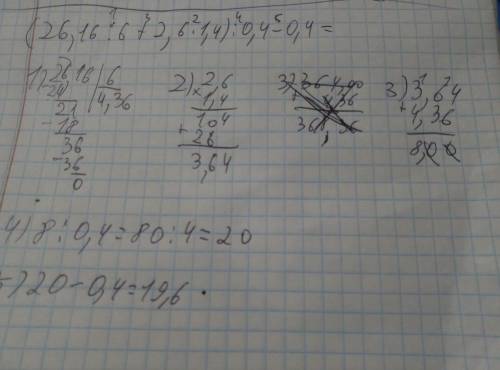 (26,16 : 6 + 2,6 · 1,4) : 0,4 - 0,4 =
1 3 2 4 5
1) 26,16 | 6
24 | 4,36
21
- 18
36
- 36
0
2) 2,6
× 1,4
104
+ 26
3,64
3) 3,64
+ 4,36
8,00
4) 8 : 0,4 = 80 : 4 = 20
5) 20 - 0,4 = 19,6.